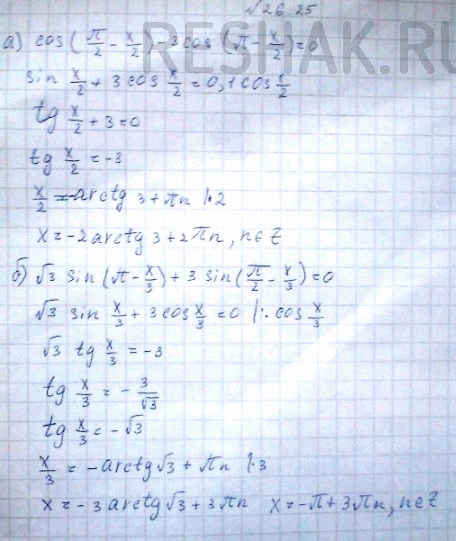 √26.25
RESHAK.RU
а) cos(π/2 - x/2) - 3cos(π - x/2) = 0
sin x/2 + 3cos x/2 = 0, 1 cos x/2
tg x/2 + 3 = 0
tg x/2 = -3
x/2 = -arctg 3 + πn |·2
x = -2 arctg 3 + 2πn, n∈Z
б) √3 sin(π - x/3) + 3 sin(π/2 - x/3) = 0
√3 sin x/3 + 3cos x/3 = 0 |: cos x/3
√3 tg x/3 = -3
tg x/3 = - 3/√3
tg x/3 = -√3
x/3 = -arctg√3 + πn |·3
x = -3arctg√3 + 3πn x = -π + 3πn, n∈Z